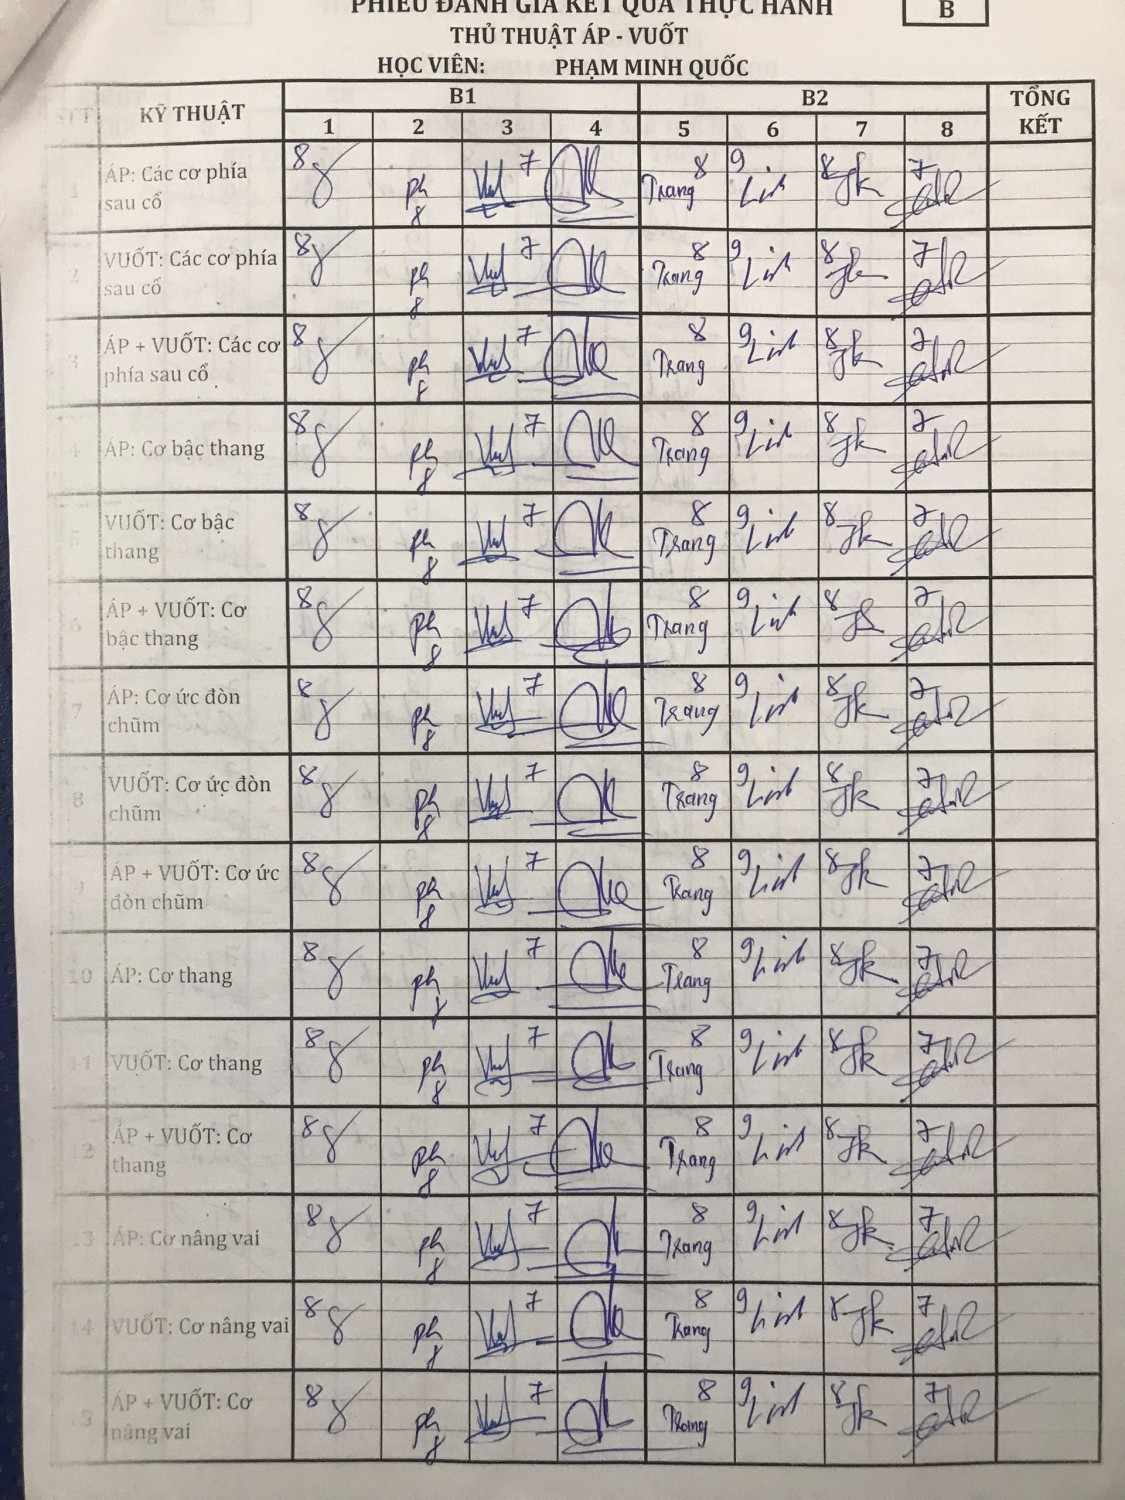 PHIẾU ĐÁNH GIÁ KẾT QUẢ THỰC HÀNH
B
THỦ THUẬT ÁP - VUỐT
HỌC VIÊN: PHẠM MINH QUỐC
STT KỸ THUẬT B1 B2 TỔNG KẾT
1 2 3 4 5 6 7 8
1 ÁP: Các cơ phía sau cổ 8 8 7 8 Trang 9 Linh 8 7
2 VUỐT: Các cơ phía sau cổ 8 8 7 8 Trang 9 Linh 8 7
3 ÁP + VUỐT: Các cơ phía sau cổ 8 8 7 8 Trang 9 Linh 8 7
4 ÁP: Cơ bậc thang 8 8 7 8 Trang 9 Linh 8 7
5 VUỐT: Cơ bậc thang 8 8 7 8 Trang 9 Linh 8 7
6 ÁP + VUỐT: Cơ bậc thang 8 8 7 8 Trang 9 Linh 8 7
7 ÁP: Cơ ức đòn chũm 8 8 7 8 Trang 9 Linh 8 7
8 VUỐT: Cơ ức đòn chũm 8 8 7 8 Trang 9 Linh 8 7
9 ÁP + VUỐT: Cơ ức đòn chũm 8 8 7 8 Trang 9 Linh 8 7
10 ÁP: Cơ thang 8 8 7 8 Trang 9 Linh 8 7
11 VUỐT: Cơ thang 8 8 7 8 Trang 9 Linh 8 7
12 ÁP + VUỐT: Cơ thang 8 8 7 8 Trang 9 Linh 8 7
13 ÁP: Cơ nâng vai 8 8 7 8 Trang 9 Linh 8 7
14 VUỐT: Cơ nâng vai 8 8 7 8 Trang 9 Linh 8 7
15 ÁP + VUỐT: Cơ nâng vai 8 8 7 8 Trang 9 Linh 8 7